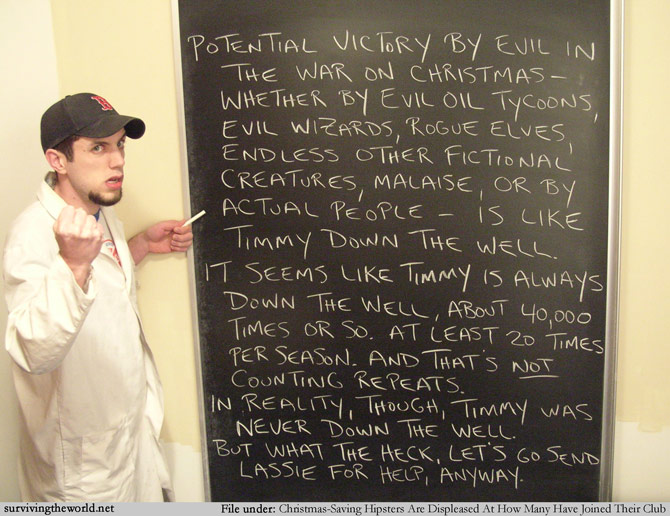 POTENTIAL VICTORY BY EVIL IN
THE WAR ON CHRISTMAS –
WHETHER BY EVIL OIL TYCOONS,
EVIL WIZARDS, ROGUE ELVES,
ENDLESS OTHER FICTIONAL
CREATURES, MALAISE, OR BY
ACTUAL PEOPLE – IS LIKE
TIMMY DOWN THE WELL.
IT SEEMS LIKE TIMMY IS ALWAYS
DOWN THE WELL, ABOUT 40,000
TIMES OR SO. AT LEAST 20 TIMES
PER SEASON. AND THAT'S NOT
COUNTING REPEATS.
IN REALITY, THOUGH, TIMMY WAS
NEVER DOWN THE WELL.
BUT WHAT THE HECK, LET'S GO SEND
LASSIE FOR HELP, ANYWAY.
survivingtheworld.net
File under: Christmas-Saving Hipsters Are Displeased At How Many Have Joined Their Club